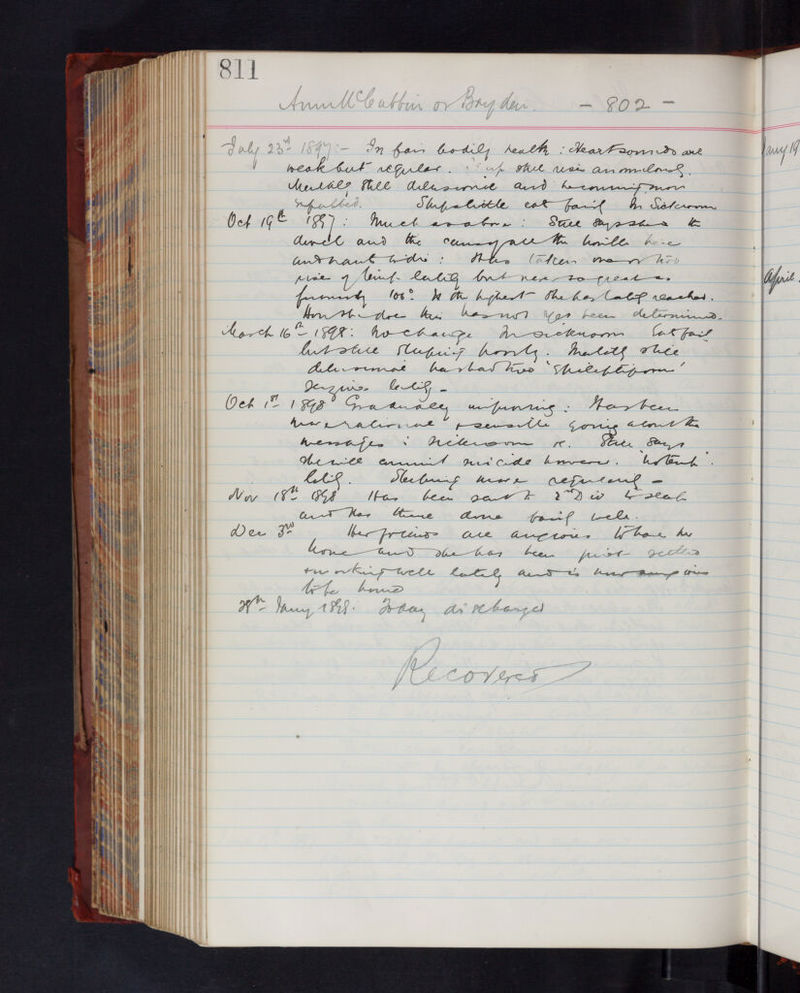 811
Ann McCubbin or Bryden. - 802 -
July 23rd 1897:- In fair bodily health : Heart sounds are
weak but regular. still rises anomalously.
Mentally still delusional and becoming more
Sleeps little eats fairly In Sickroom
Oct 19th 1897: Much as above : Still says she is the
devil and the cause of all the trouble here
and : Has taken one or two
rises of temp. lately but never so great as
formerly 106° is the highest she has lately reached.
How she does this has not yet been determined.
March 16th 1898: No change In sickroom Eats fairly
but still sleeping poorly. Mentally still
delusional has had two 'epileptiform'
seizures lately -
Oct 1st 1898 Gradually improving : Has been
more rational & sensible going about the
messages : sickroom &c. Still says
she will commit suicide however.
lately. Sleeping more regularly -
Nov 18th 1898 Has been sent to 2nd Div
and has there done fairly well.
Dec 3rd Her friends are anxious to have her
home and she has been just
& working well lately and is anxious
to be home
28th Jany 1898. Today discharged
Recovered
Jany 19
April.